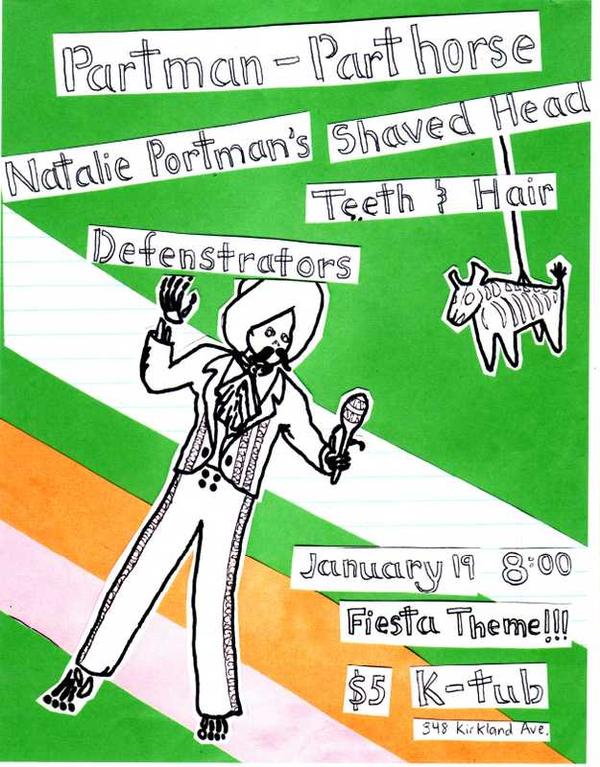 Partman-Parthorse
Natalie Portman's Shaved Head
Teeth & Hair
Defenstrators
January 19 8:00
Fiesta Theme!!!
$5 K-tub
348 Kirkland Ave.